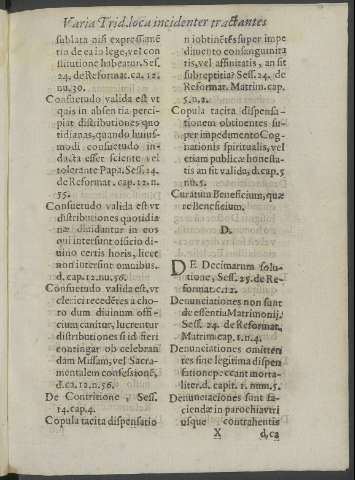 Varia Trid. loca incidenter tractantes
sublata nisi expressionē
tio de ea in lege, vel con
stitutione habeatur. Sess.
24. de Reformat. ca. 12.
nu. 30.
Consuetudo valida est vt
quis in absentia perci-
piat distributiones quo
tidianas, quando huius-
modi consuetudo in-
ducta esset sciente vel
tolerante Papa. Sess. 24.
de Reformat. cap. 12. n.
55.
Consuetudo valida est vt
distributiones quotidia
næ diuidantur in eos
qui intersunt officio di-
uino certis horis, licet
non intersint omnibus.
d. cap. 12. n. 56.
Consuetudo valida est, vt
clerici recedētes a cho-
ro dum diuinum offi-
cium canitur, lucrentur
distributiones si id fieri
contingat ob celebran
dam Missam, vel Sacra-
mentalem confessionē,
d. ca. 12. n. 56.
De Contritione, Sess.
14. cap. 4.
Copula tacita dispensatio
n iobtinētes super impe
dimento consanguinita
tis, vel affinitatis, an sit
subreptitia? Sess. 24. de
Reformat. Matrim. cap.
5. n. 2.
Copula tacita dispensa-
tionem obtinentes su-
per impedimento Cog-
nationis spiritualis, vel
etiam publicæ honesta-
tis an sit valida, d. cap. 5
nu. 5.
Curatum Beneficium, quæ
re Beneficium.
D.
DE Decimarum solu-
tione, Sess. 25. de Re-
format. c. 12.
Denunciationes non sunt
de essentia Matrimonij,
Sess. 24. de Reformat.
Matrim. cap. 1. n. 4.
Denunctationes omitten
tes sine legitima dispen
satione peccant morta-
liter. d. capit. 1. num. 5.
Denunciaciones sunt fa-
ciendæ in parochia vtri
usque contrahentis
X d, ca